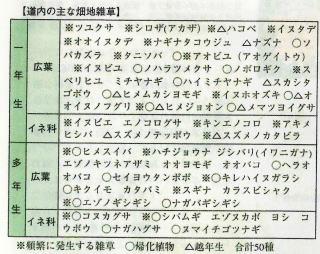 【道内の主な畑地雑草】
一年生
広葉
※ツユクサ ※シロザ(アカザ) ※△ハコベ ※イヌタデ
※オオイヌタデ ※ナギナタコウジュ △ナズナ ○ソ
バカズラ ※タニソバ ○※アオビユ(アオゲイトウ)
※イヌビユ ○ノハラツメクサ ○ノボロギク ※ス
ベリヒユ ミチヤナギ ○ハイミチヤナギ △スカシタ
ゴボウ ○△ヒメムカシヨモギ ※イヌホオズキ ○△オ
オイヌノフグリ ※○△ヒメジョオン ○△メマツヨイグサ
イネ科
※イヌビエ エノコログサ ※キンエノコロ ※アキメ
ヒシバ △スズメノテッポウ ※△スズメノカタビラ
多年生
広葉
※○ヒメスイバ ※ハチジョウナ ジシバリ(イワニガナ)
エゾノキツネアザミ オオヨモギ オオバコ ○ヘラオ
オバコ ○セイヨウタンポポ ※○キレハイヌガラシ
○キクイモ カタバミ ※スギナ カラスビシャク
※○エゾノギシギシ ○ナガバギシギシ
イネ科
※○コヌカグサ ※○シバムギ エゾヌカボ ヨシ コ
ウボウ ○ナガハグサ ○ヌマイチゴツナギ
※頻繁に発生する雑草 ○帰化植物 △越年生 合計50種